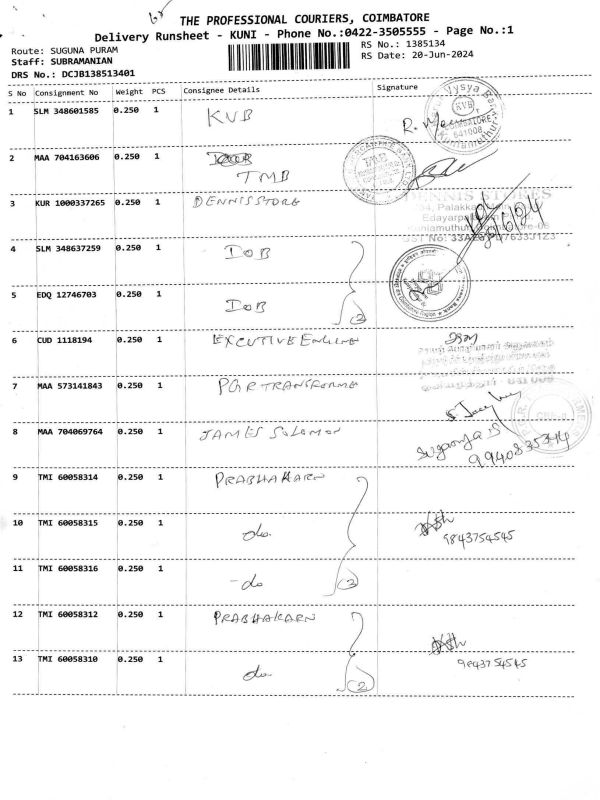 THE PROFESSIONAL COURIERS, COIMBATORE
Delivery Runsheet - KUNI - Phone No.:0422-3505555 - Page No.:1
Route: SUGUNA PURAM
RS No.: 1385134
Staff: SUBRAMANIAN
RS Date: 20-Jun-2024
DRS No.: DCJB138513401
S No Consignment No Weight PCS Consignee Details Signature
1 SLM 348601585 0.250 1 KVB
KVB
COIMBATORE
641008
2 MAA 704163606 0.250 1
TMB
3 KUR 1000337265 0.250 1 DENNIS STORE
DENNIS STORES
4 SLM 348637259 0.250 1 IOB
5 EDQ 12746703 0.250 1 IOB
2
6 CUD 1118194 0.250 1 EXECUTIVE ENGINE
7 MAA 573141843 0.250 1 PGR TRANSFORME
8 MAA 704069764 0.250 1 JAMES SOLOMON
Suganya S
9940835344
9 TMI 60058314 0.250 1 PRABHAKARN
10 TMI 60058315 0.250 1 do
9843754545
11 TMI 60058316 0.250 1 -do
3
12 TMI 60058312 0.250 1 PRABHAKARN
13 TMI 60058310 0.250 1 do
9843754545
2